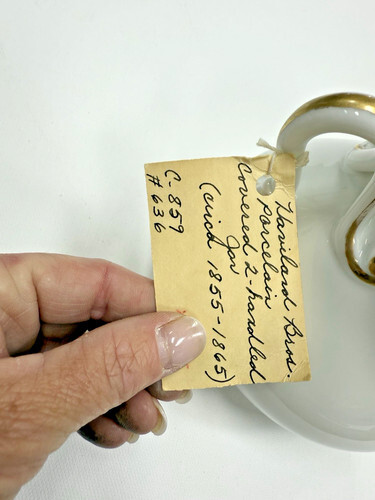 Haviland Bros.
Porcelain
Covered 2-handled
Jar
(circa 1855-1865)
C-859
# 636